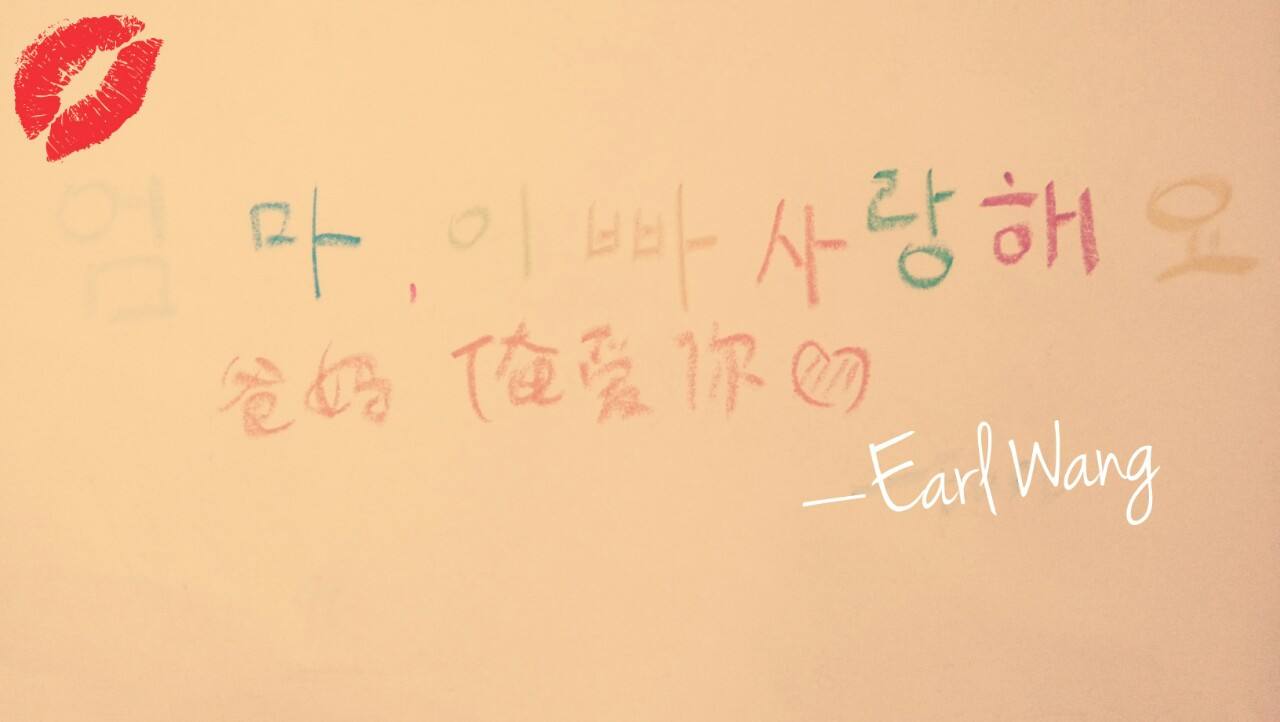 엄마, 이빠 사랑해요
爸妈 俺爱你♡
—Earl Wang